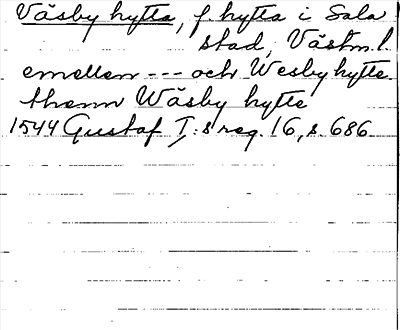 Väsby hytta, f. hytta i Sala
stad, Västm. l.
emellen --- och Wesby hytte
thenn Wäsby hytte
1544 Gustaf I:s reg. 16, s. 686